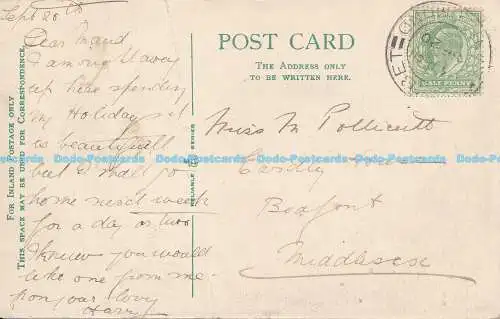 Sept 20th
Dear Maud
I am up
up here spending
my Holiday it
is beautiful
but I shall go
home next week
for a day or two
I knew you would
like one from me
from your lovg
Harry
FOR INLAND POSTAGE ONLY
THIS SPACE MAY BE USED FOR CORRESPONDENCE.
RELIABLE SERIES
POST CARD
THE ADDRESS ONLY
TO BE WRITTEN HERE.
HALF PENNY
Miss M Pollicutt
Bedfont
Middlesex
Dodo-Postcards Dodo-Postcards Dodo-Postcards Dodo-Postcards Dodo-Postcards Dodo-Postcards